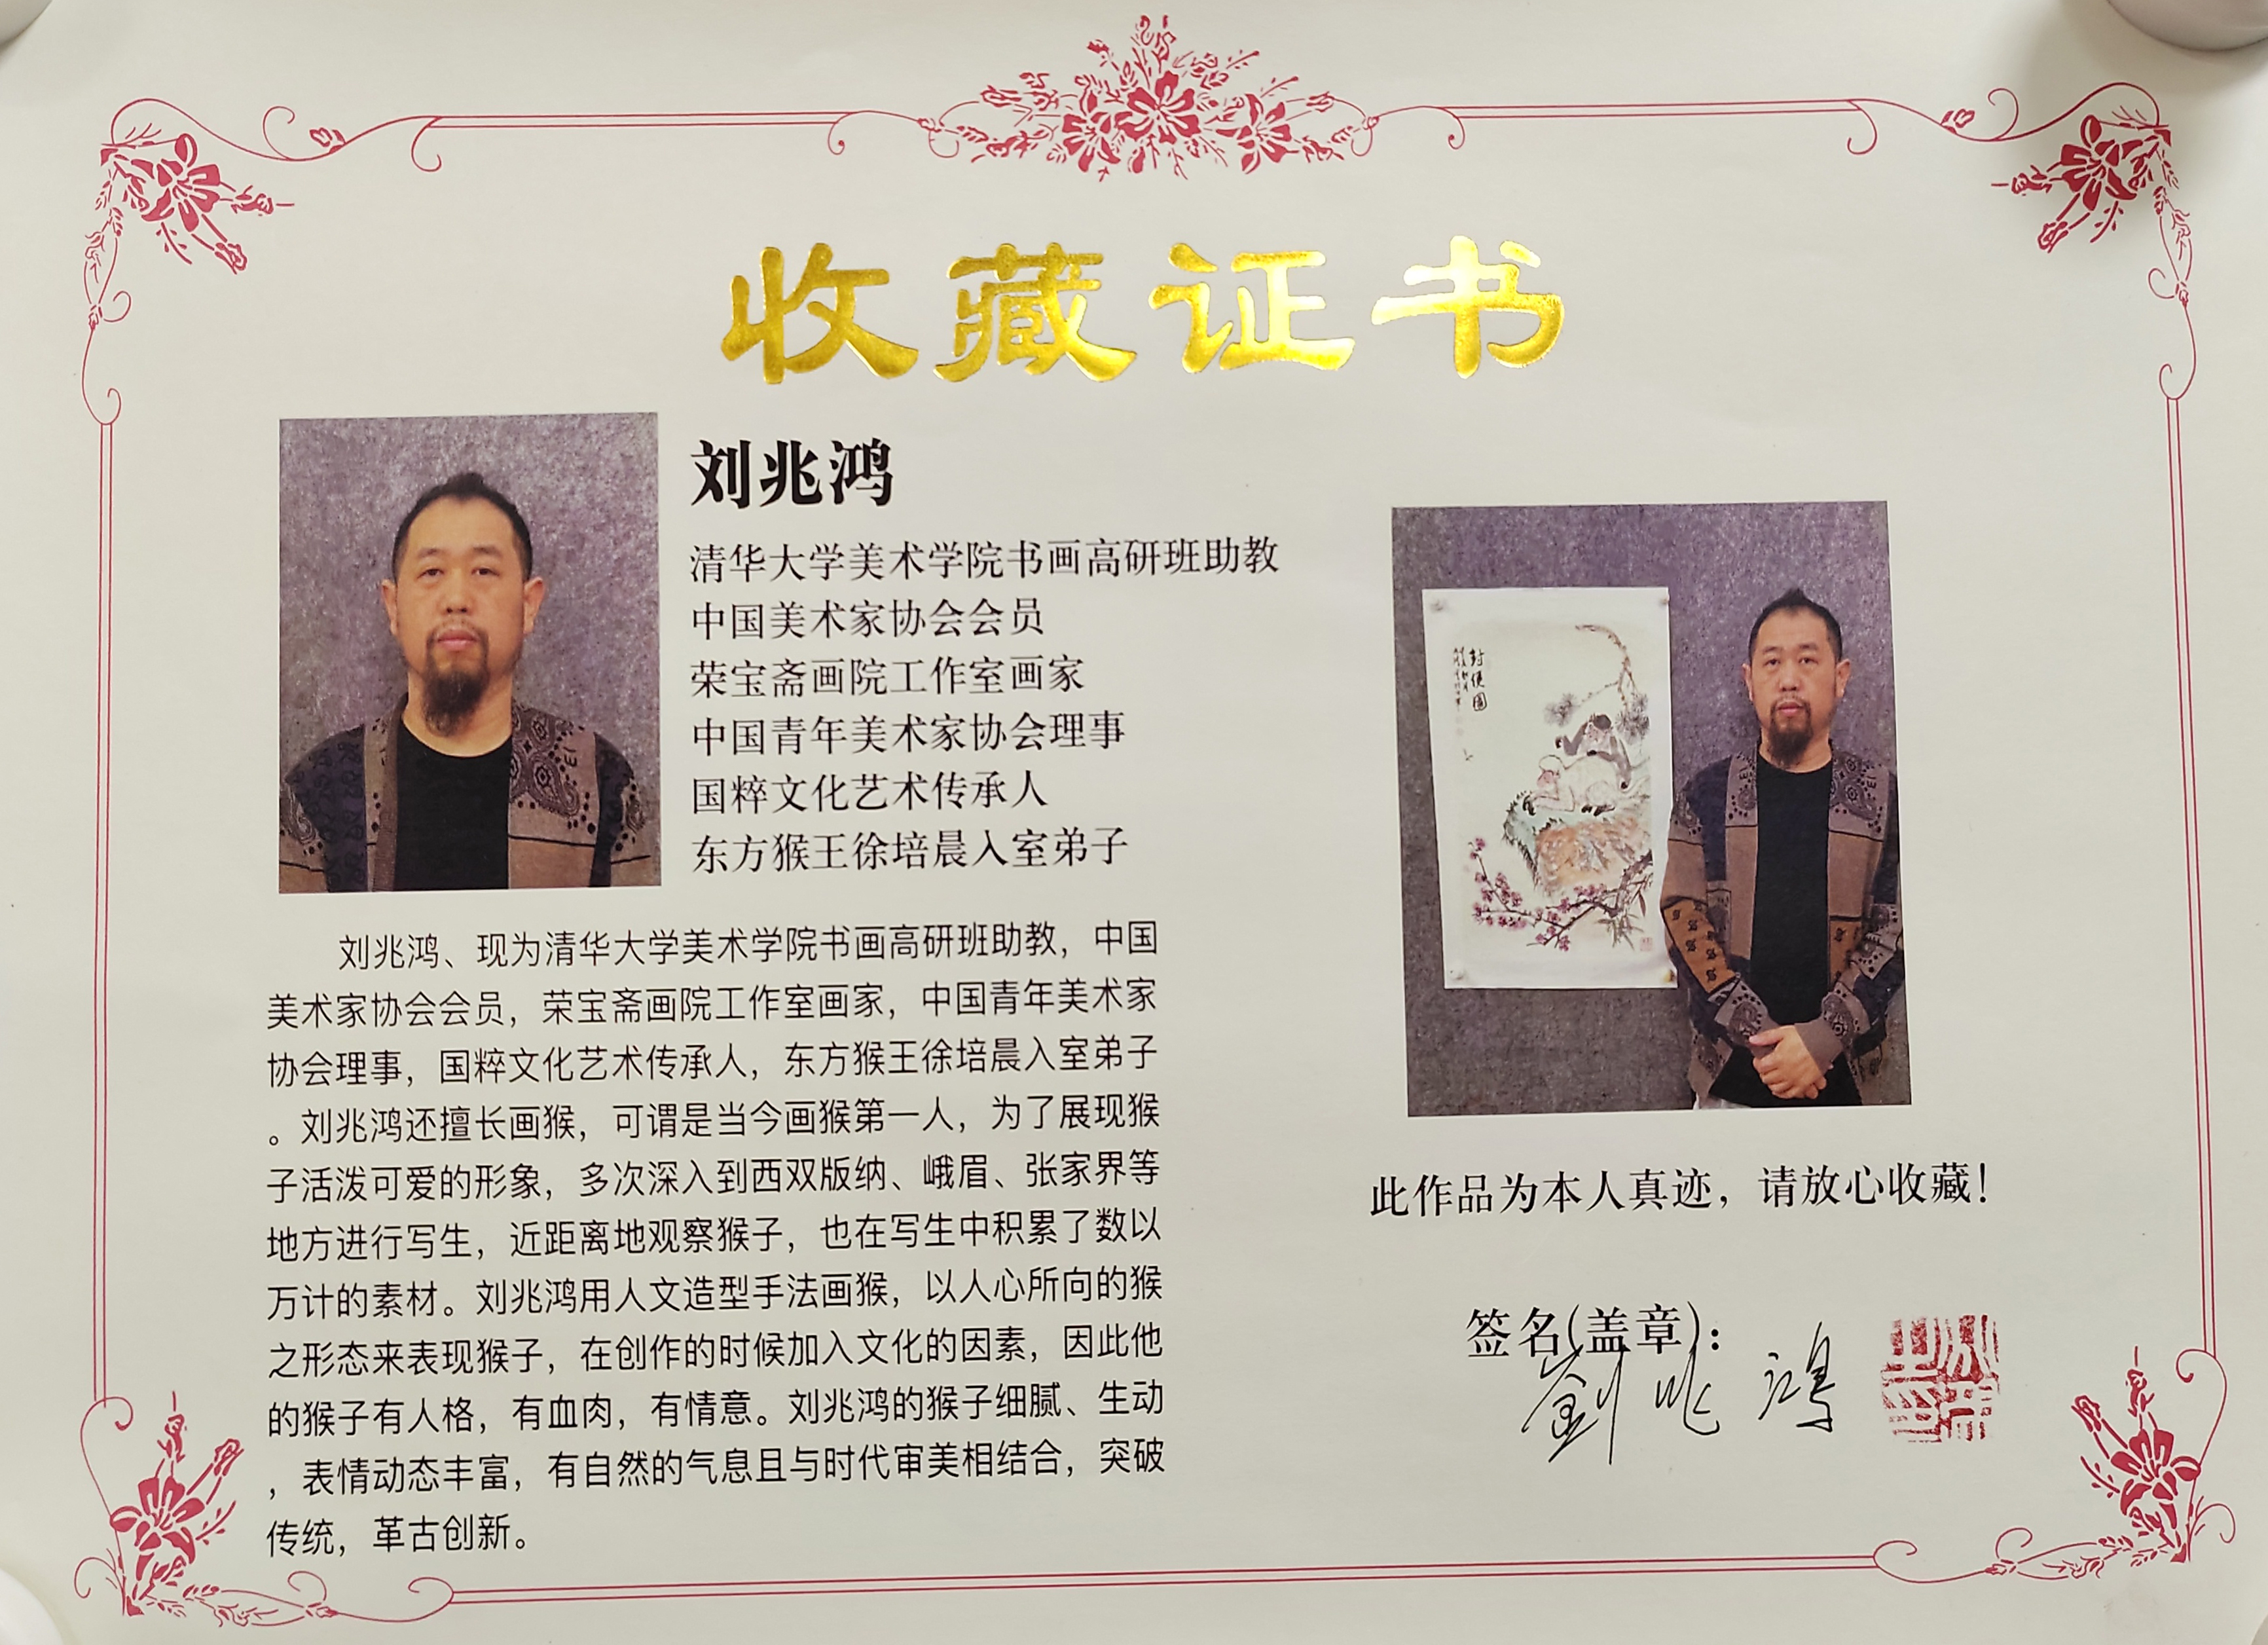 收藏证书
刘兆鸿
清华大学美术学院书画高研班助教
中国美术家协会会员
荣宝斋画院工作室画家
中国青年美术家协会理事
国粹文化艺术传承人
东方猴王徐培晨入室弟子
刘兆鸿、现为清华大学美术学院书画高研班助教，中国
美术家协会会员，荣宝斋画院工作室画家，中国青年美术家
协会理事，国粹文化艺术传承人，东方猴王徐培晨入室弟子
。刘兆鸿还擅长画猴，可谓是当今画猴第一人，为了展现猴
子活泼可爱的形象，多次深入到西双版纳、峨眉、张家界等
地方进行写生，近距离地观察猴子，也在写生中积累了数以
万计的素材。刘兆鸿用人文造型手法画猴，以人心所向的猴
之形态来表现猴子，在创作的时候加入文化的因素，因此他
的猴子有人格，有血肉，有情意。刘兆鸿的猴子细腻、生动
，表情动态丰富，有自然的气息且与时代审美相结合，突破
传统，革古创新。
封侯图
此作品为本人真迹，请放心收藏！
签名(盖章)：
劉兆鴻